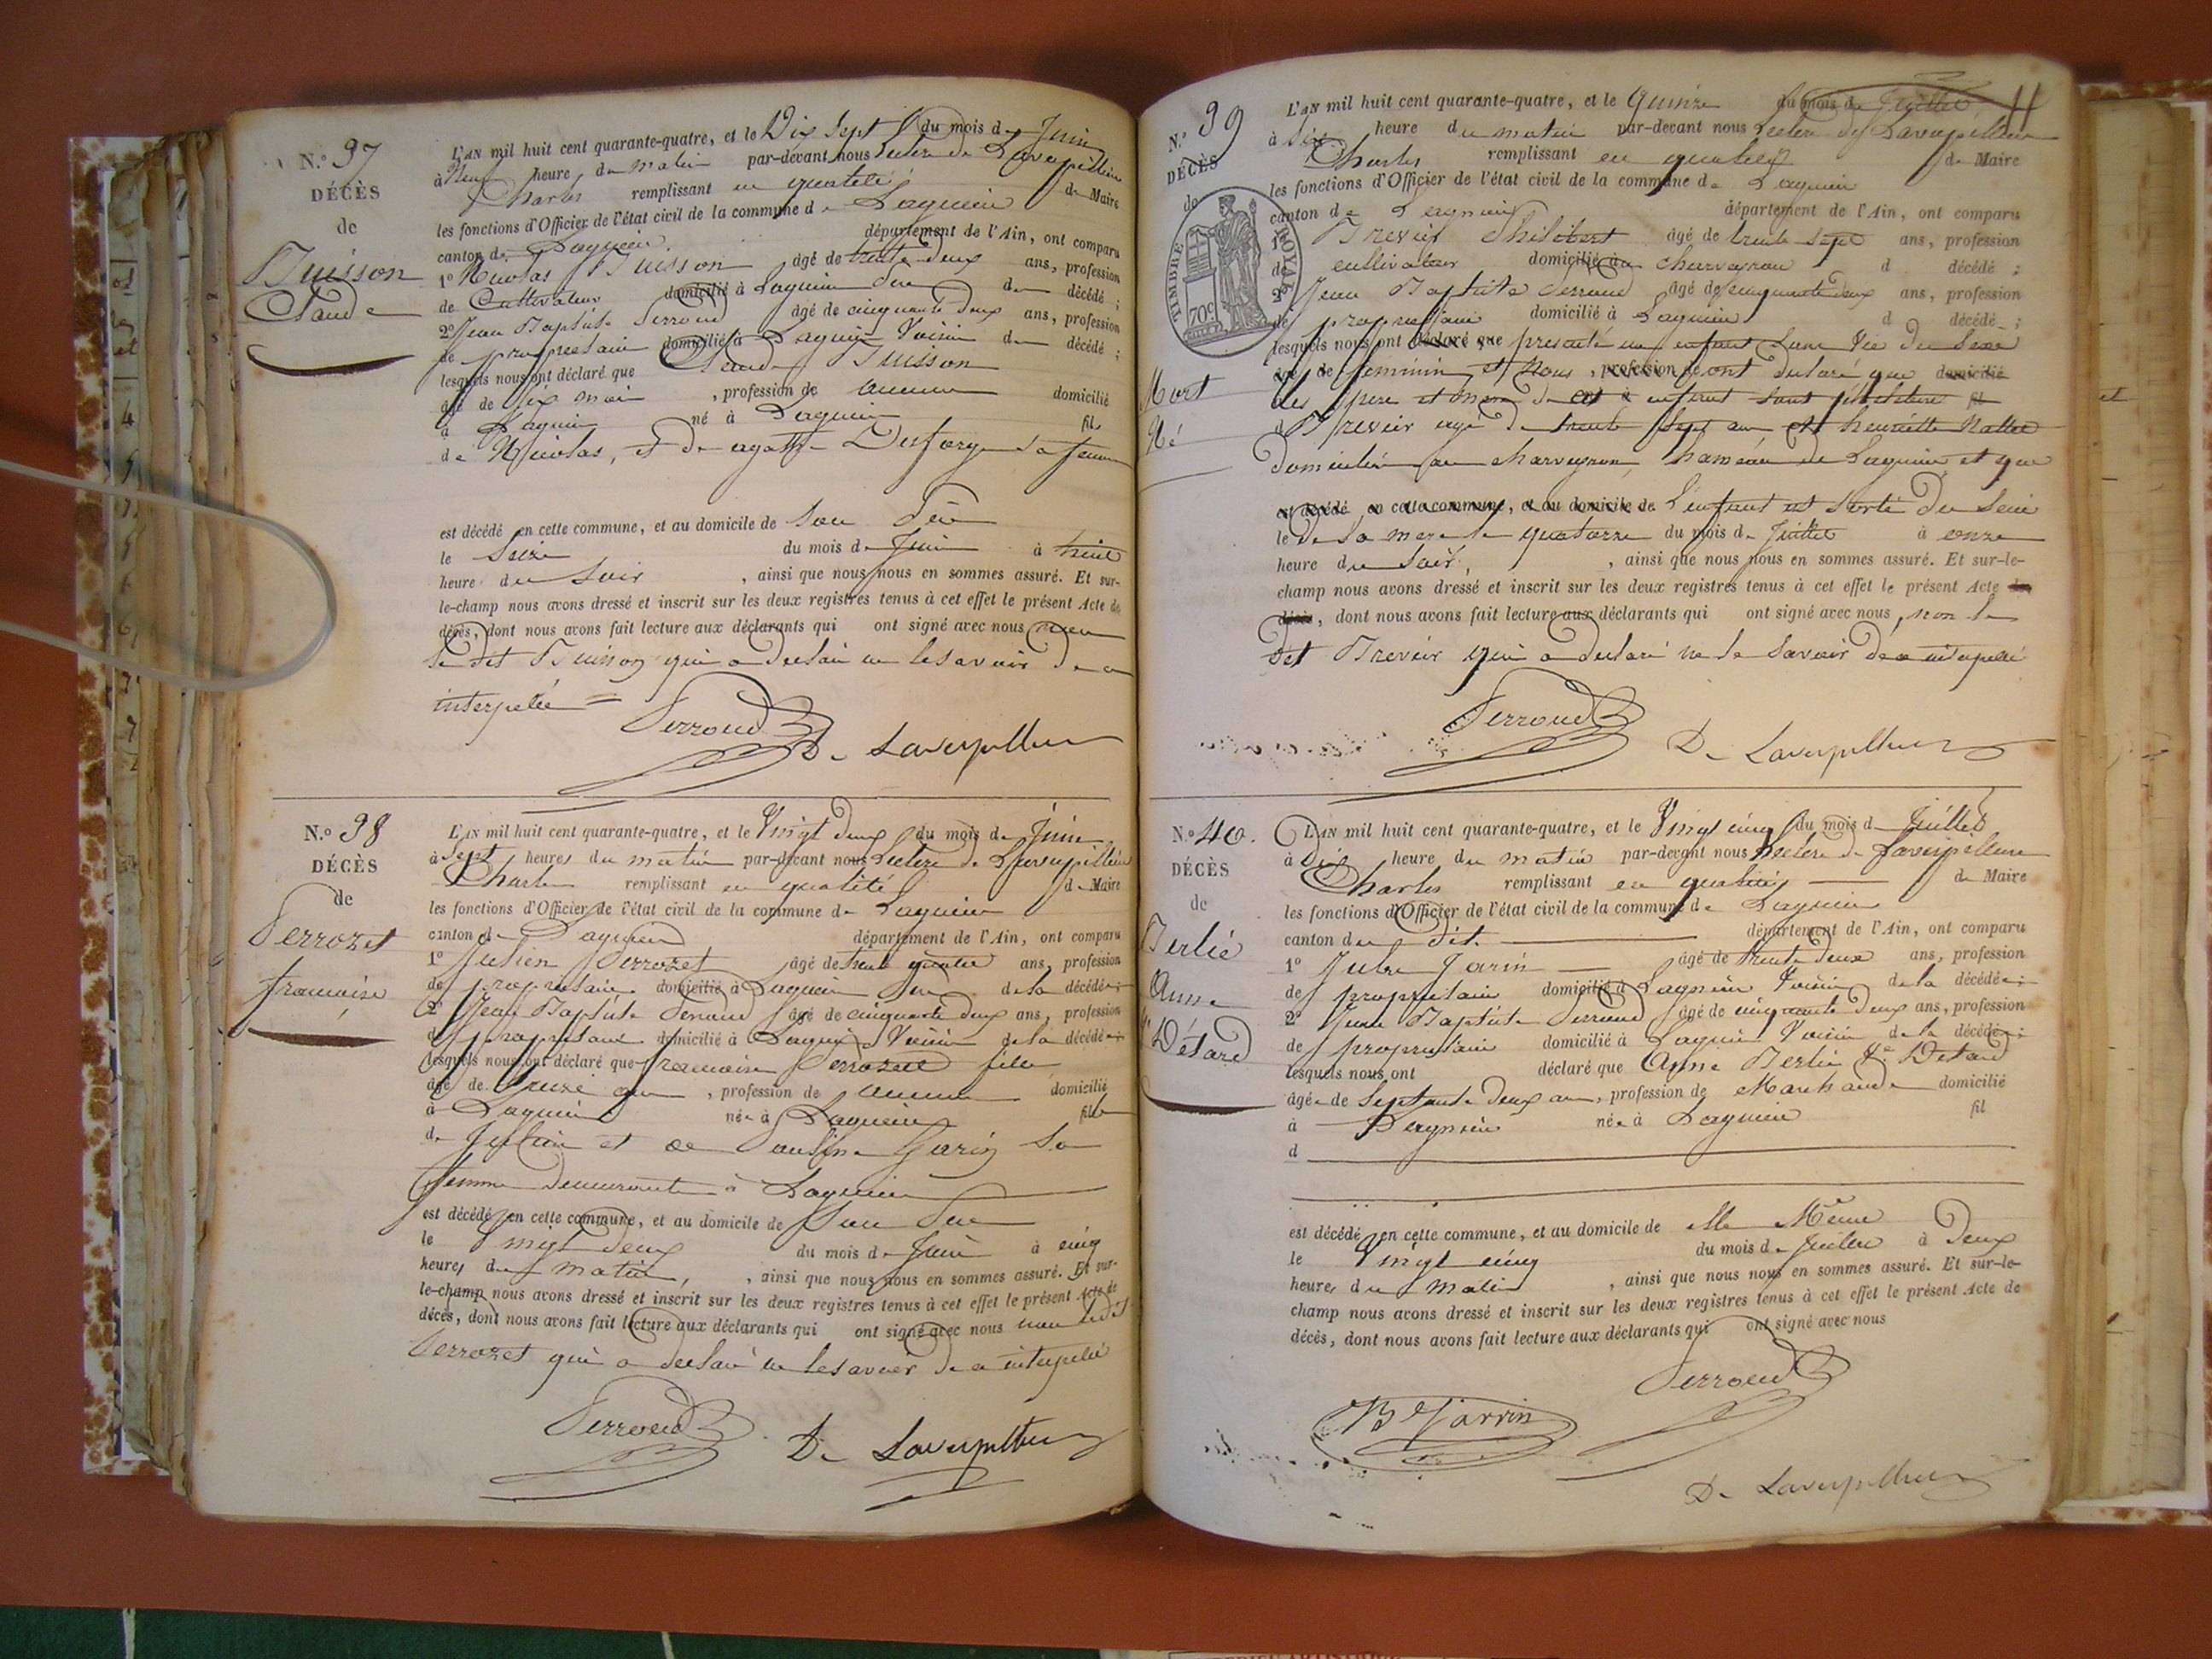 N.º 37
DÉCÈS
de
Buisson
Claude
L'AN mil huit cent quarante-quatre, et le Dix Sept du mois de Juin
à Neuf heure du matin par-devant nous de Laverpilliere
Charles remplissant en qualité de Maire
les fonctions d'Officier de l'état civil de la commune de Lagnieu
canton de Lagnieu département de l'Ain, ont comparu
1º Nicolas Buisson âgé de trente deux ans, profession
de Cultivateur domicilié à Lagnieu du décédé ;
2º Jean Baptiste Perroud âgé de cinquante deux ans, profession
de proprietaire domicilié à Lagnieu Voisin du décédé ;
lesquels nous ont déclaré que Claude Buisson
âgé de six mois , profession de aucune domicilié
à Lagnieu né à Lagnieu fils
de Nicolas, et de agathe sa femme
est décédé en cette commune, et au domicile de Son Père
le Seize du mois de Juin à huit
heure du Soir , ainsi que nous nous en sommes assuré. Et sur-
le-champ nous avons dressé et inscrit sur les deux registres tenus à cet effet le présent Acte de
décès, dont nous avons fait lecture aux déclarants qui ont signé avec nous non
le dit Buisson qui a declaré ne le savoir de ce
interpelé =
Perroud De Laverpilliere
N.º 38
DÉCÈS
de
Perrozet
francoise
L'AN mil huit cent quarante-quatre, et le Vingt deux du mois de Juin
à Sept heures du matin par-devant nous de Laverpilliere
Charles remplissant en qualité de Maire
les fonctions d'Officier de l'état civil de la commune de Lagnieu
canton de Lagnieu département de l'Ain, ont comparu
1º Julien Perrozet âgé de trente quatre ans, profession
de proprietaire domicilié à Lagnieu Père de la décédée ;
2º Jean Baptiste Perroud âgé de cinquante deux ans, profession
de proprietaire domicilié à Lagnieu Voisin de la décédée ;
lesquels nous ont déclaré que francoise Perrozet fille
âgé de ans , profession de aucune domicilié
à Lagnieu née à Lagnieu fille
de Julien et de Garin sa
femme demeurants à Lagnieu
est décédé en cette commune, et au domicile de Son Père
le Vingt deux du mois de Juin à cinq
heures du matin, , ainsi que nous nous en sommes assuré. Et sur-
le-champ nous avons dressé et inscrit sur les deux registres tenus à cet effet le présent Acte de
décès, dont nous avons fait lecture aux déclarants qui ont signé avec nous non ledit
Perrozet qui a declaré ne le savoir de ce interpelé
Perroud De Laverpilliere
11
N.º 39
DÉCÈS
de
TIMBRE ROYAL
70c
Mort
Né
L'AN mil huit cent quarante-quatre, et le Quinze du mois de Juillet
à Six heure du matin par-devant nous de Laverpilliere
Charles remplissant en qualité de Maire
les fonctions d'Officier de l'état civil de la commune de Lagnieu
canton de Lagnieu département de l'Ain, ont comparu
1º Brevet Philibert âgé de trente sept ans, profession
de cultivateur domicilié à charveyron d décédé ;
2º Jean Baptiste Perroud âgé de cinquante deux ans, profession
de proprietaire domicilié à Lagnieu d décédé ;
lesquels nous ont déclaré que presenté un enfant Sans Vie du Sexe
âgé de feminin et Nous , profession de ont declaré que domicilié
les pere et mere de cet enfant sont philibert
d Brevet agé de trente sept ans et henriette
domiciliés au charveyron, hameau de Lagnieu et que
est décédé en cette commune, et au domicile de L'enfant est Sorti du Sein
le De Sa mere le quatorze du mois de Juillet à onze
heure du Soir, , ainsi que nous nous en sommes assuré. Et sur-le-
champ nous avons dressé et inscrit sur les deux registres tenus à cet effet le présent Acte de
décès, dont nous avons fait lecture aux déclarants qui ont signé avec nous, non le
Dit Brevet qui a declaré ne le Savoir de ce interpelé
Perroud De Laverpilliere
N.º 40.
DÉCÈS
de
Berlié
Anne
Ve Détard
L'AN mil huit cent quarante-quatre, et le Vingt cinq du mois d Juillet
à Dix heure du matin par-devant nous de Laverpilliere
Charles remplissant en qualité de Maire
les fonctions d'Officier de l'état civil de la commune de Lagnieu
canton du dit département de l'Ain, ont comparu
1º Jarin âgé de trente deux ans, profession
de proprietaire domicilié à Lagnieu Voisin de la décédée ;
2º Jean Baptiste Perroud âgé de cinquante deux ans, profession
de proprietaire domicilié à Lagnieu Voisin de la décédée ;
lesquels nous ont déclaré que Anne Berlié Ve Detard
âgée de Septante deux ans, profession de Marchande domicilié
à Lagnieu née à Lagnieu fil
d
est décédé en cette commune, et au domicile de elle Même
le Vingt cinq du mois de Juillet à Deux
heures du Matin , ainsi que nous nous en sommes assuré. Et sur-le-
champ nous avons dressé et inscrit sur les deux registres tenus à cet effet le présent Acte de
décès, dont nous avons fait lecture aux déclarants qui ont signé avec nous
Perroud
B Jarrin
De Laverpilliere